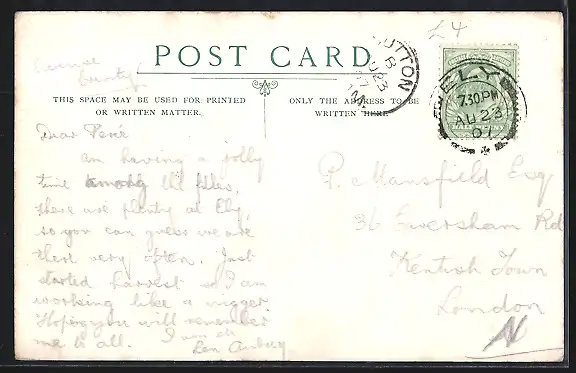 £4
POST CARD
THIS SPACE MAY BE USED FOR PRINTED
OR WRITTEN MATTER.
ONLY THE ADDRESS TO BE
WRITTEN HERE.
SUTTON
ELY
7.30 PM
AU 23
07
HALF PENNY
Dear
am having a jolly
time among the
there are plenty at Ely,
so you can guess we are
there very often. Just
started harvest so I am
working like a nigger
Hoping you will remember
me to all. I am
Len
P. Mansfield Esq
36 Eversham Rd
Kentish Town
London
N